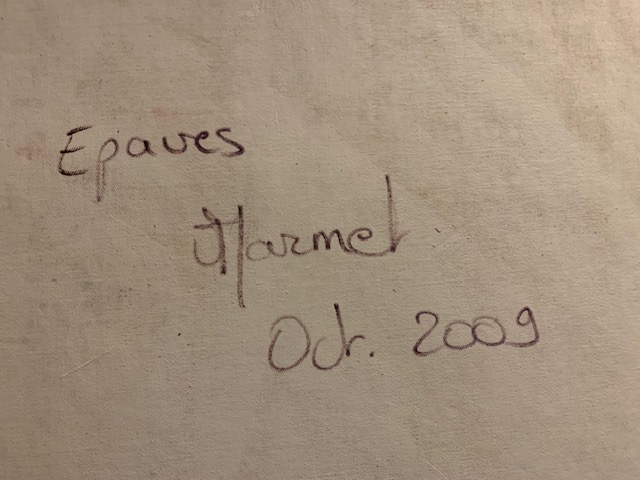 Epaves
Marmet
Oct. 2009